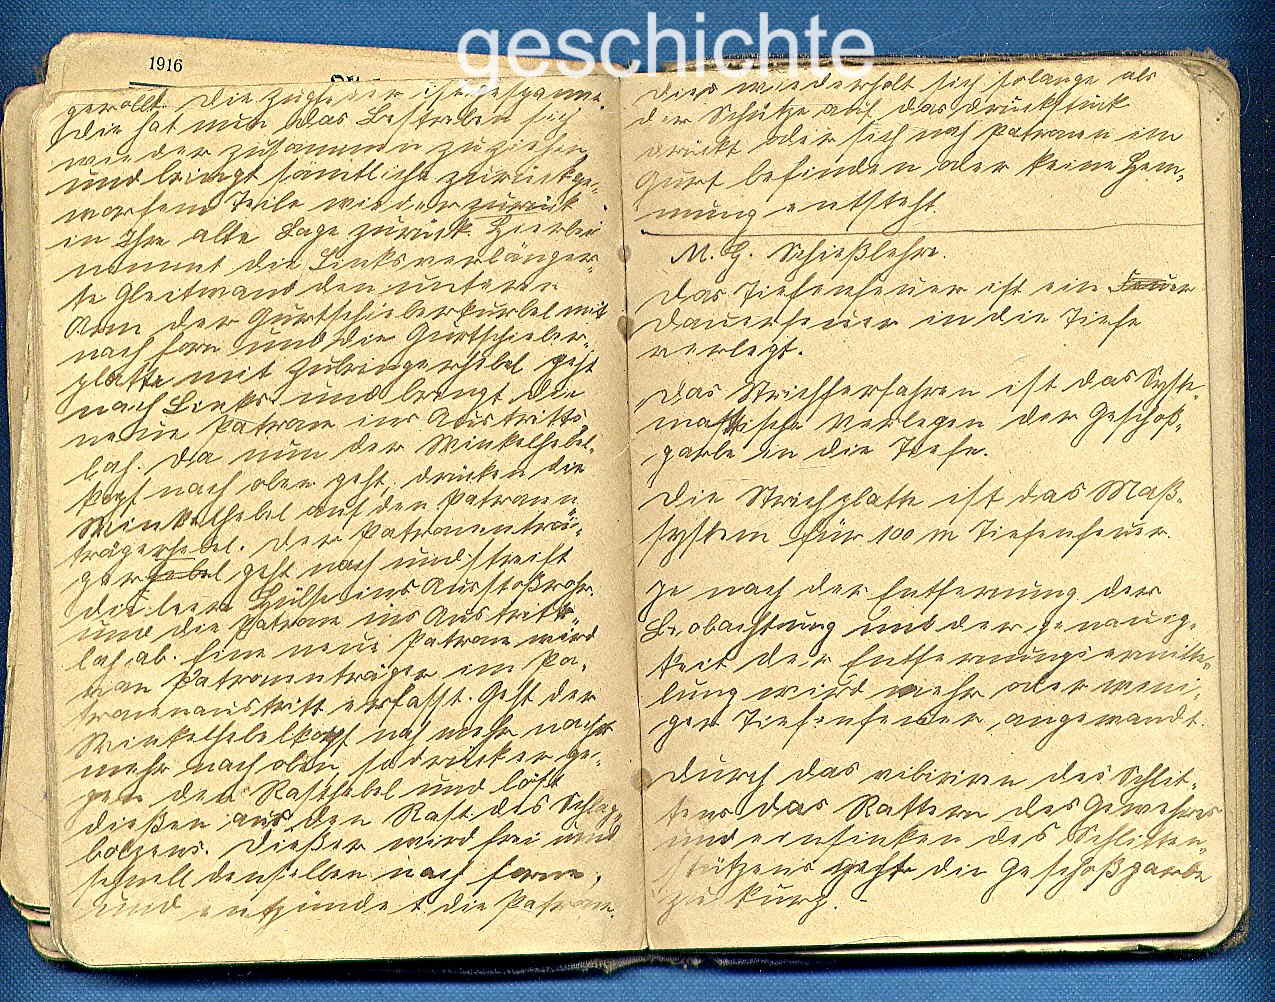 geschichte
1916
gerollt. Die Zugfeder ist gespannt.
Die hat nun das Bestreben sich
wieder zusammen zu ziehen
und bringt sämtliche zurückge-
worfene Teile wieder zurück
in Ihre alte Lage zurück. Hierbei
nimmt die Linksverlänger-
te Gleitwand den unteren
Arm der Gurtschieberkurbel mit
nach forn und die Gurtschieber-
platte mit Zubringerhebel geht
nach Links und bringt die
neue Patrone ins Austritts-
loch. Da nun der Winkelhebel-
kopf nach oben geht, drücken die
Winkelhebel auf den Patronen-
trägerhebel. Der Patronenträ-
ger hebel geht nach und streift
die leere Hülse ins Ausstoßrohr
und die Patrone ins Austritts-
loch ab. Eine neue Patrone wird
von Patronenträger im Pa-
tronenaustritt erfasst. Geht der
Winkelhebelkopf noch mehr nach
mehr nach oben, so drückt er ge-
gen den Rasthebel und löst
dießen aus den Rast des Schlag-
bolzens. Dießer wird frei und
schnell denselben nach forne,
und entzündet die Patrone.
Dies wiederholt sich solange als
der Schütze auf das Druckstück
drückt oder sich noch Patronen im
Gurt befinden oder keine Hem-
mung entsteht.
M. G. Schießlehre.
Das Tiefenfeuer ist ein Feuer
Dauerfeuer in die Tiefe
verlegt.
Das Strichferfahren ist das Syste-
mattische Verlegen der Geschoß-
garbe in die Tiefe.
Die Strichplatte ist das Maß-
system für 100 m Tiefenfeuer.
Je nach der Entfernung der
Beobachtung und der genauig-
keit der Entfernungsermitte-
lung wird mehr oder weni-
ger Tiefenfeuer angewandt.
Durch das vibriren des Schlit-
tens das Rattern des Gewehres
und einsinken des Schlitten-
stützens geht die Geschoßgarbe
zu kurz.-